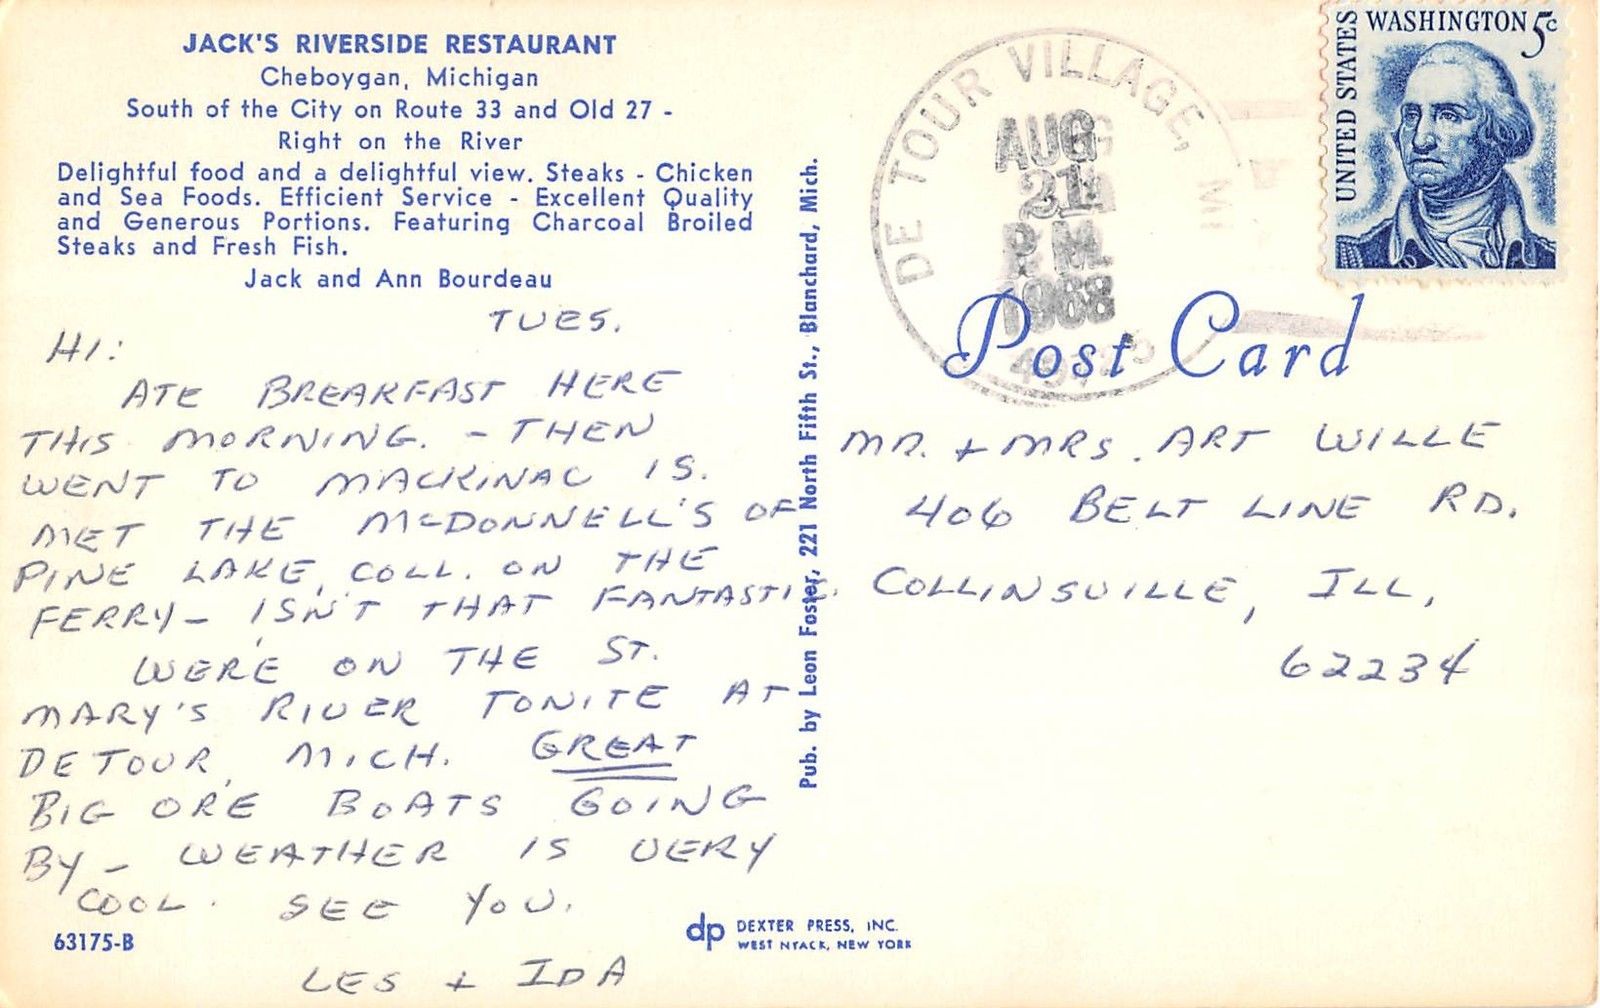 JACK'S RIVERSIDE RESTAURANT
Cheboygan, Michigan
South of the City on Route 33 and Old 27 -
Right on the River
Delightful food and a delightful view. Steaks - Chicken
and Sea Foods. Efficient Service - Excellent Quality
and Generous Portions. Featuring Charcoal Broiled
Steaks and Fresh Fish.
Jack and Ann Bourdeau
TUES.
HI:
ATE BREAKFAST HERE
THIS MORNING. - THEN
WENT TO MACKINAC IS.
MET THE McDONNELL'S OF
PINE LAKE, COLL. ON THE
FERRY - ISN'T THAT FANTASTIC.
WE'RE ON THE ST.
MARY'S RIVER TONITE AT
DETOUR, MICH. GREAT
BIG ORE BOATS GOING
BY - WEATHER IS VERY
COOL. SEE YOU.
LES + IDA
63175-B
dp DEXTER PRESS, INC.
WEST NYACK, NEW YORK
Pub. by Leon Foster, 221 North Fifth St., Blanchard, Mich.
DE TOUR VILLAGE, MI
AUG
21
P.M.
1968
49725
UNITED STATES
WASHINGTON 5c
Post Card
MR. + MRS. ART WILLE
406 BELT LINE RD.
COLLINSVILLE, ILL,
62234